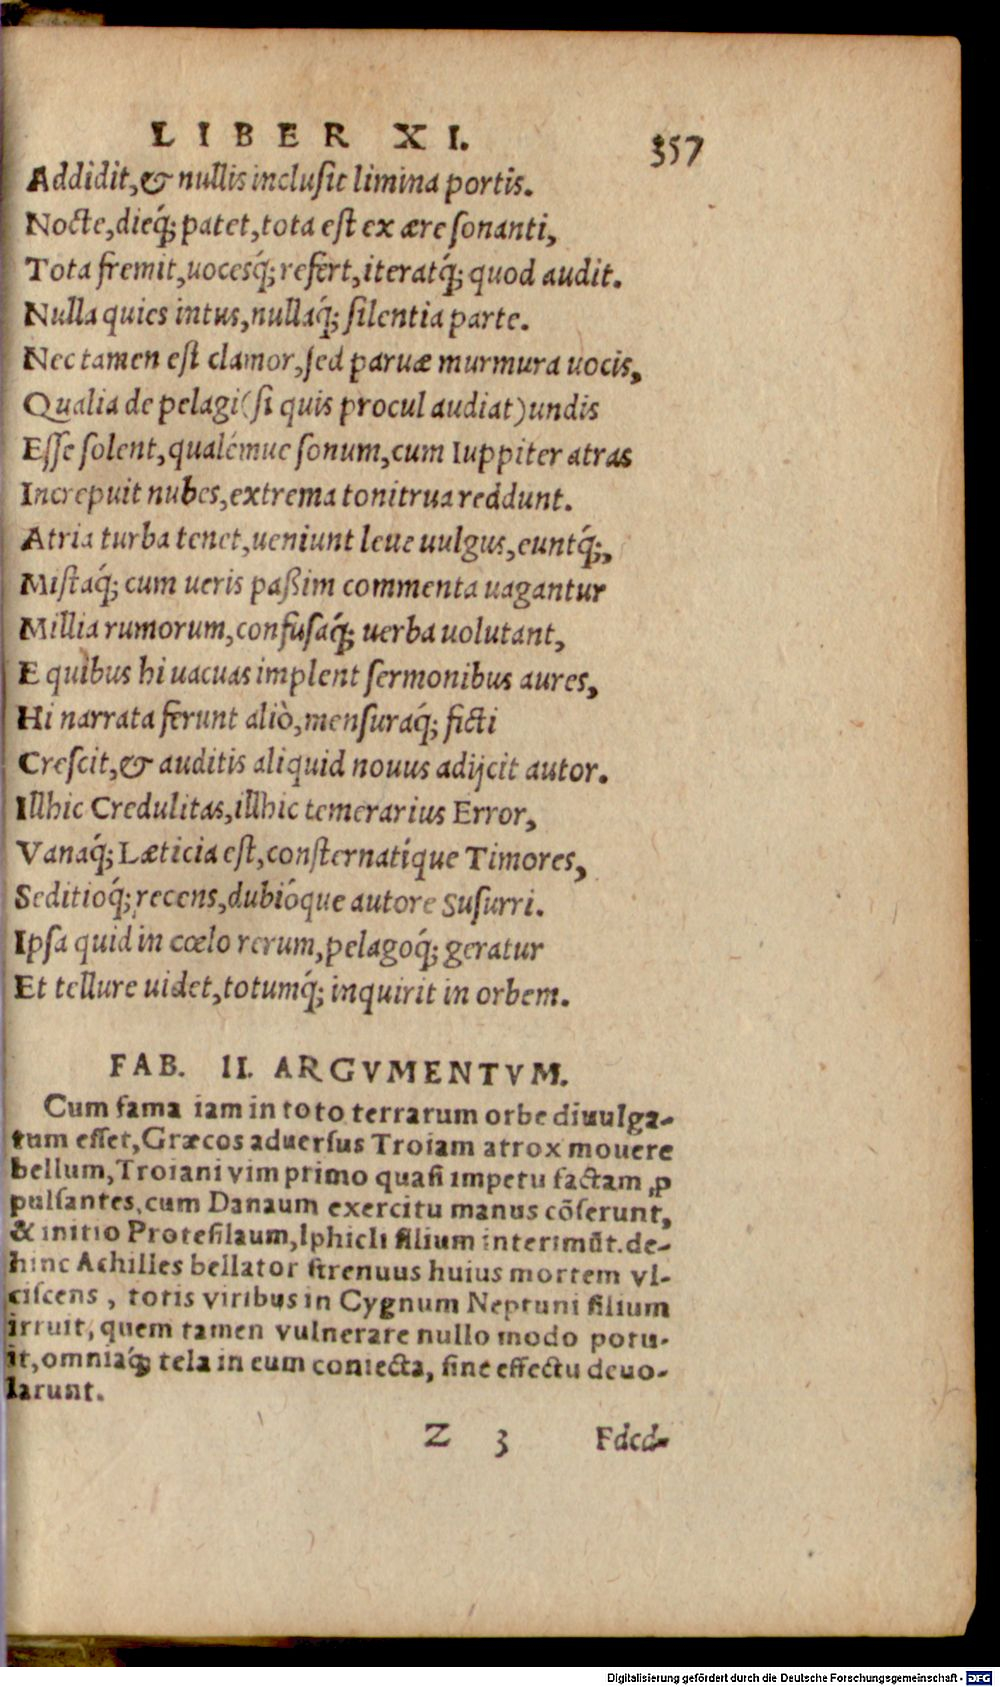 LIBER XI. 357
Addidit,& nullis inclusit limina portis.
Nocte,dieq́; patet,tota est ex ære sonanti,
Tota fremit,uocesq́; refert,iteratq́; quod audit.
Nulla quies intus,nullaq́; silentia parte.
Nec tamen est clamor,sed paruæ murmura uocis,
Qualia de pelagi(si quis procul audiat)undis
Esse solent,qualémue sonum,cum Iuppiter atras
Increpuit nubes,extrema tonitrua reddunt.
Atria turba tenet,ueniunt leue uulgus,euntq́;,
Mistaq́; cum ueris paßim commenta uagantur
Millia rumorum,confusaq́; uerba uolutant,
E quibus hi uacuas implent sermonibus aures,
Hi narrata ferunt aliò,mensuraq́; ficti
Crescit,& auditis aliquid nouus adijcit autor.
Illhic Credulitas,illhic temerarius Error,
Vanaq́; Læticia est,consternatíque Timores,
Seditioq́; recens,dubióque autore Susurri.
Ipsa quid in cœlo rerum,pelagoq́; geratur
Et tellure uidet,totumq́; inquirit in orbem.
FAB. II. ARGVMENTVM.
Cum fama iam in toto terrarum orbe diuulga-
tum esset,Græcos aduersus Troiam atrox mouere
bellum,Troiani vim primo quasi impetu factam ꝓ
pulsantes,cum Danaum exercitu manus cōserunt,
& initio Protesilaum,Iphicli filium interimūt.de-
hinc Achilles bellator strenuus huius mortem vl-
ciscens, totis viribus in Cygnum Neptuni filium
irruit,quem tamen vulnerare nullo modo potu-
it,omniaq́; tela in eum coniecta, sine effectu deuo-
larunt.
Z 3 Fdcd-
Digitalisierung gefördert durch die Deutsche Forschungsgemeinschaft - DFG